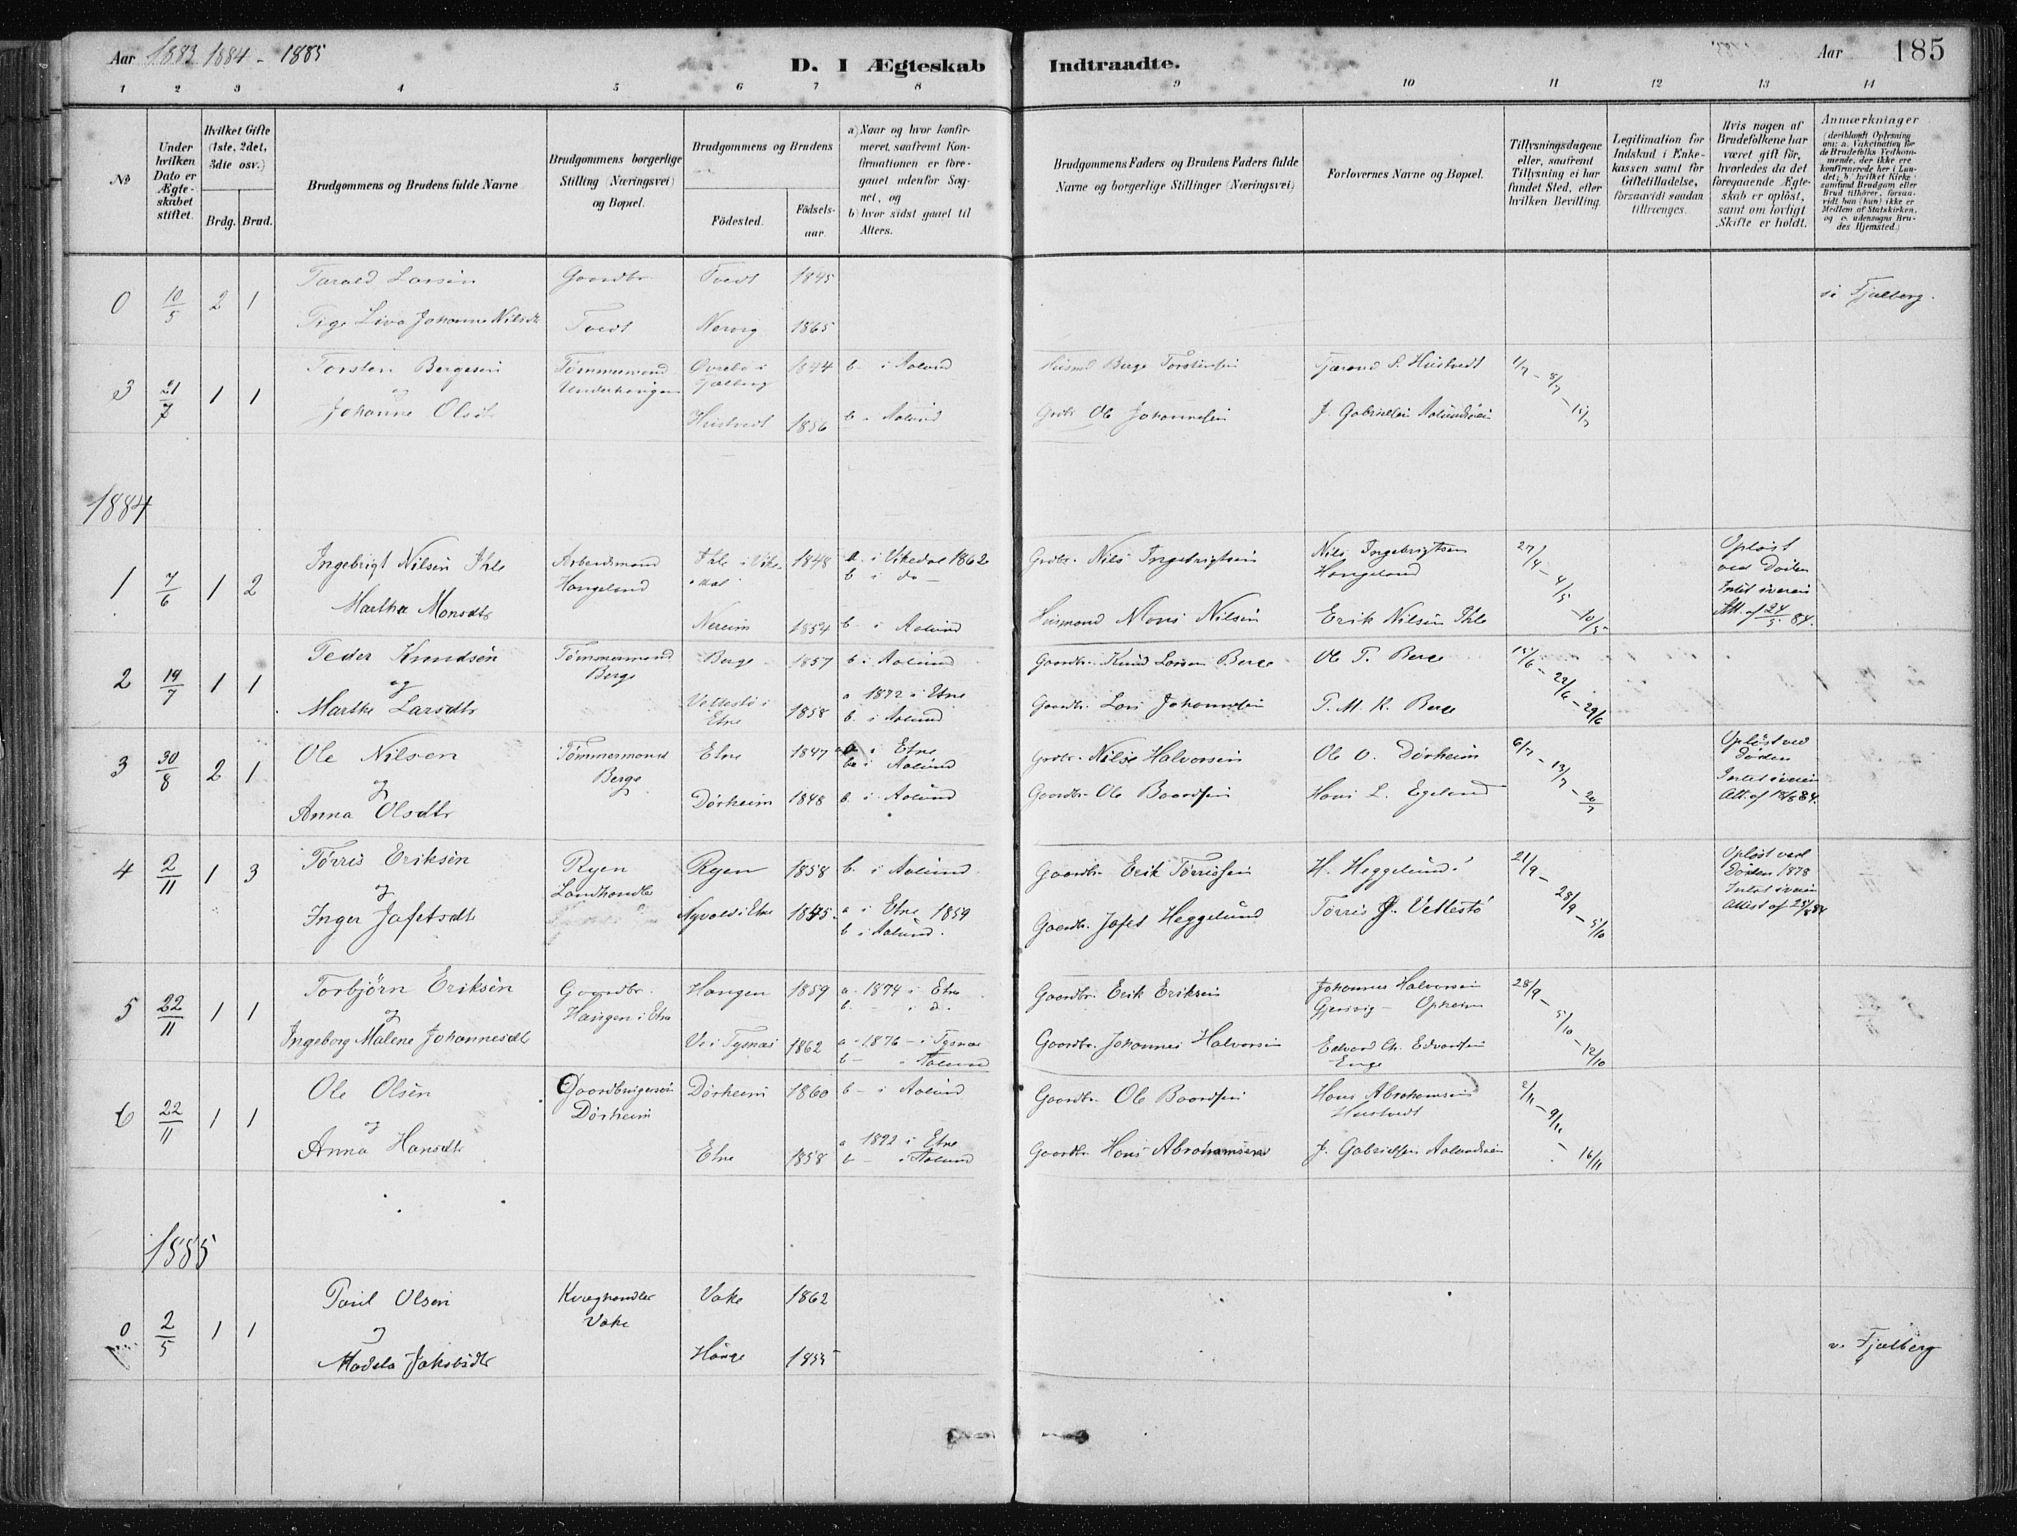 Aar 1883 1884 - 1885
D. I Ægteskab Indtraadte.
Aar 185
1 2 3 4 5 6 7 8 9 10 11 12 13 14
No
Under hvilken Dato er Ægteskabet stiftet.
Hvilket Gifte (1ste, 2det, 3die osv.)
Brdg. Brud.
Brudgommens og Brudens fulde Navne
Brudgommens borgerlige Stilling (Næringsvei) og Bopæl.
Brudgommens og Brudens
Fødested.
Fødselsaar.
a) Naar og hvor konfirmeret, saafremt Konfirmationen er foregaaet udenfor Sognet, og
b) hvor sidst gaaet til Alters.
Brudgommens Faders og Brudens Faders fulde Navne og borgerlige Stillinger (Næringsvei)
Forlovernes Navne og Bopæl.
Tillysningsdagene eller, saafremt Tillysning ei har fundet Sted, efter hvilken Bevilling.
Legitimation for Indskud i Enkekassen samt for Giftetilladelse, forsaavidt saadan tiltrænges.
Hvis nogen af Brudefolkene har været gift før, hvorledes da det foregaaende Ægteskab er opløst, samt om lovligt Skifte er holdt.
Anmærkninger
0 10/5 2 1 Tarald Larsen Gaardbr Tvedt 1845
Pige Liva Johanne Nilsdtr Tvedt Nervig 1865
i Fjælberg.
3 21/7 1 1 Torsten Bergesen Tømmermand Øvrebø i Fjælberg 1844 b. i Aalund Husmd Berge Torstensen Tjærand S. Hustvedt 1/7 - 8/7 - 15/7
og
Johanne Olsdtr Hustvedt 1856 b. i Aalund Grdbr Ole Johannesen J. Gabrielsen
1884
1 7/6 1 2 Ingebrigt Nilsen Ihle Arbeidsmand Haugeland Ihle i Vikedal 1848 a. i Vikedal 1862 b i do - Grdbr. Nils Ingebrigtsen Nils Ingebrigtsen Haugeland 27/4 - 4/5 - 10/5 Opløst ved Døden
Martha Monsdtr Nereim 1854 b - i Aalund Husmand Mons Nilsen Erik Nilsen Ihle Att. af 24/5 84.
2 19/7 1 1 Peder Knudsen Tømmermand Berge Berge 1857 b. i Aalund Gaardbr. Knud Larsen Berge Ole T. Berge 15/6 - 22/6 - 29/6
og
Marthe Larsdtr Vettestø i Etne 1858 a 1872 i Etne b. i Aalund Gaardbr. Lars Johannesen T. M. K. Berge
3 30/8 2 1 Ole Nilsen Tømmermand Berge Etne 1847 a i Etne b. i Aalund Grdbr. Nils Halvorsen Ole O. Dørheim 6/7 - 13/7 - 20/7 Opløst ved Døden
og
Anna Olsdtr Dørheim 1848 b. i Aalund Gaardbr. Ole Baardsen Hans L. Egeland
4 2/11 1 3 Tørris Eriksen Ryen Landhandler Ryen 1858 b. i Aalund. Gaardbr. Erik Tørrissen H. Heggelund 21/9 - 28/9 - 5/10 Opløst ved Døden 1878
og
Inger Jafetsdtr i Etne 1845 a i Etne 1859 b i Aalund. Gaardbr. Jafet Heggelund Tørris J. Vettestø
5 22/11 1 1 Torbjørn Eriksen Gaardbr. Haugen i Etne Haugen 1859 a. 1874 i Etne b. - i d. Gaardbr. Erik Eriksen Johannes Halvorsen Gjersvig - Opheim 28/9 - 5/10 - 12/10
og
Ingeborg Malene Johannesdtr Ve i Tysnæs 1862 a - 1876 - i Tysnæs b - i Aalund Gaardbr. Johannes Halvorsen Edvard Ch. Edvardsen Enge
6 22/11 1 1 Ole Olsen Gaardbrugersøn Dørheim Dørheim 1860 b - i Aalund Gaardbr. Ole Baardsen Hans Abrahamsen Hustvedt 2/11 - 9/11 - 16/11
og
Anna Hansdtr Etne 1858 a 1872 i Etne b - i Aalund Gaardbr Hans Abrahamsen J. Gabrielsen
1885
0 2/5 1 1 Paul Olsen Kvæghandler Vake Vake 1862
og
Jakobsdtr Hauge
Fjælberg